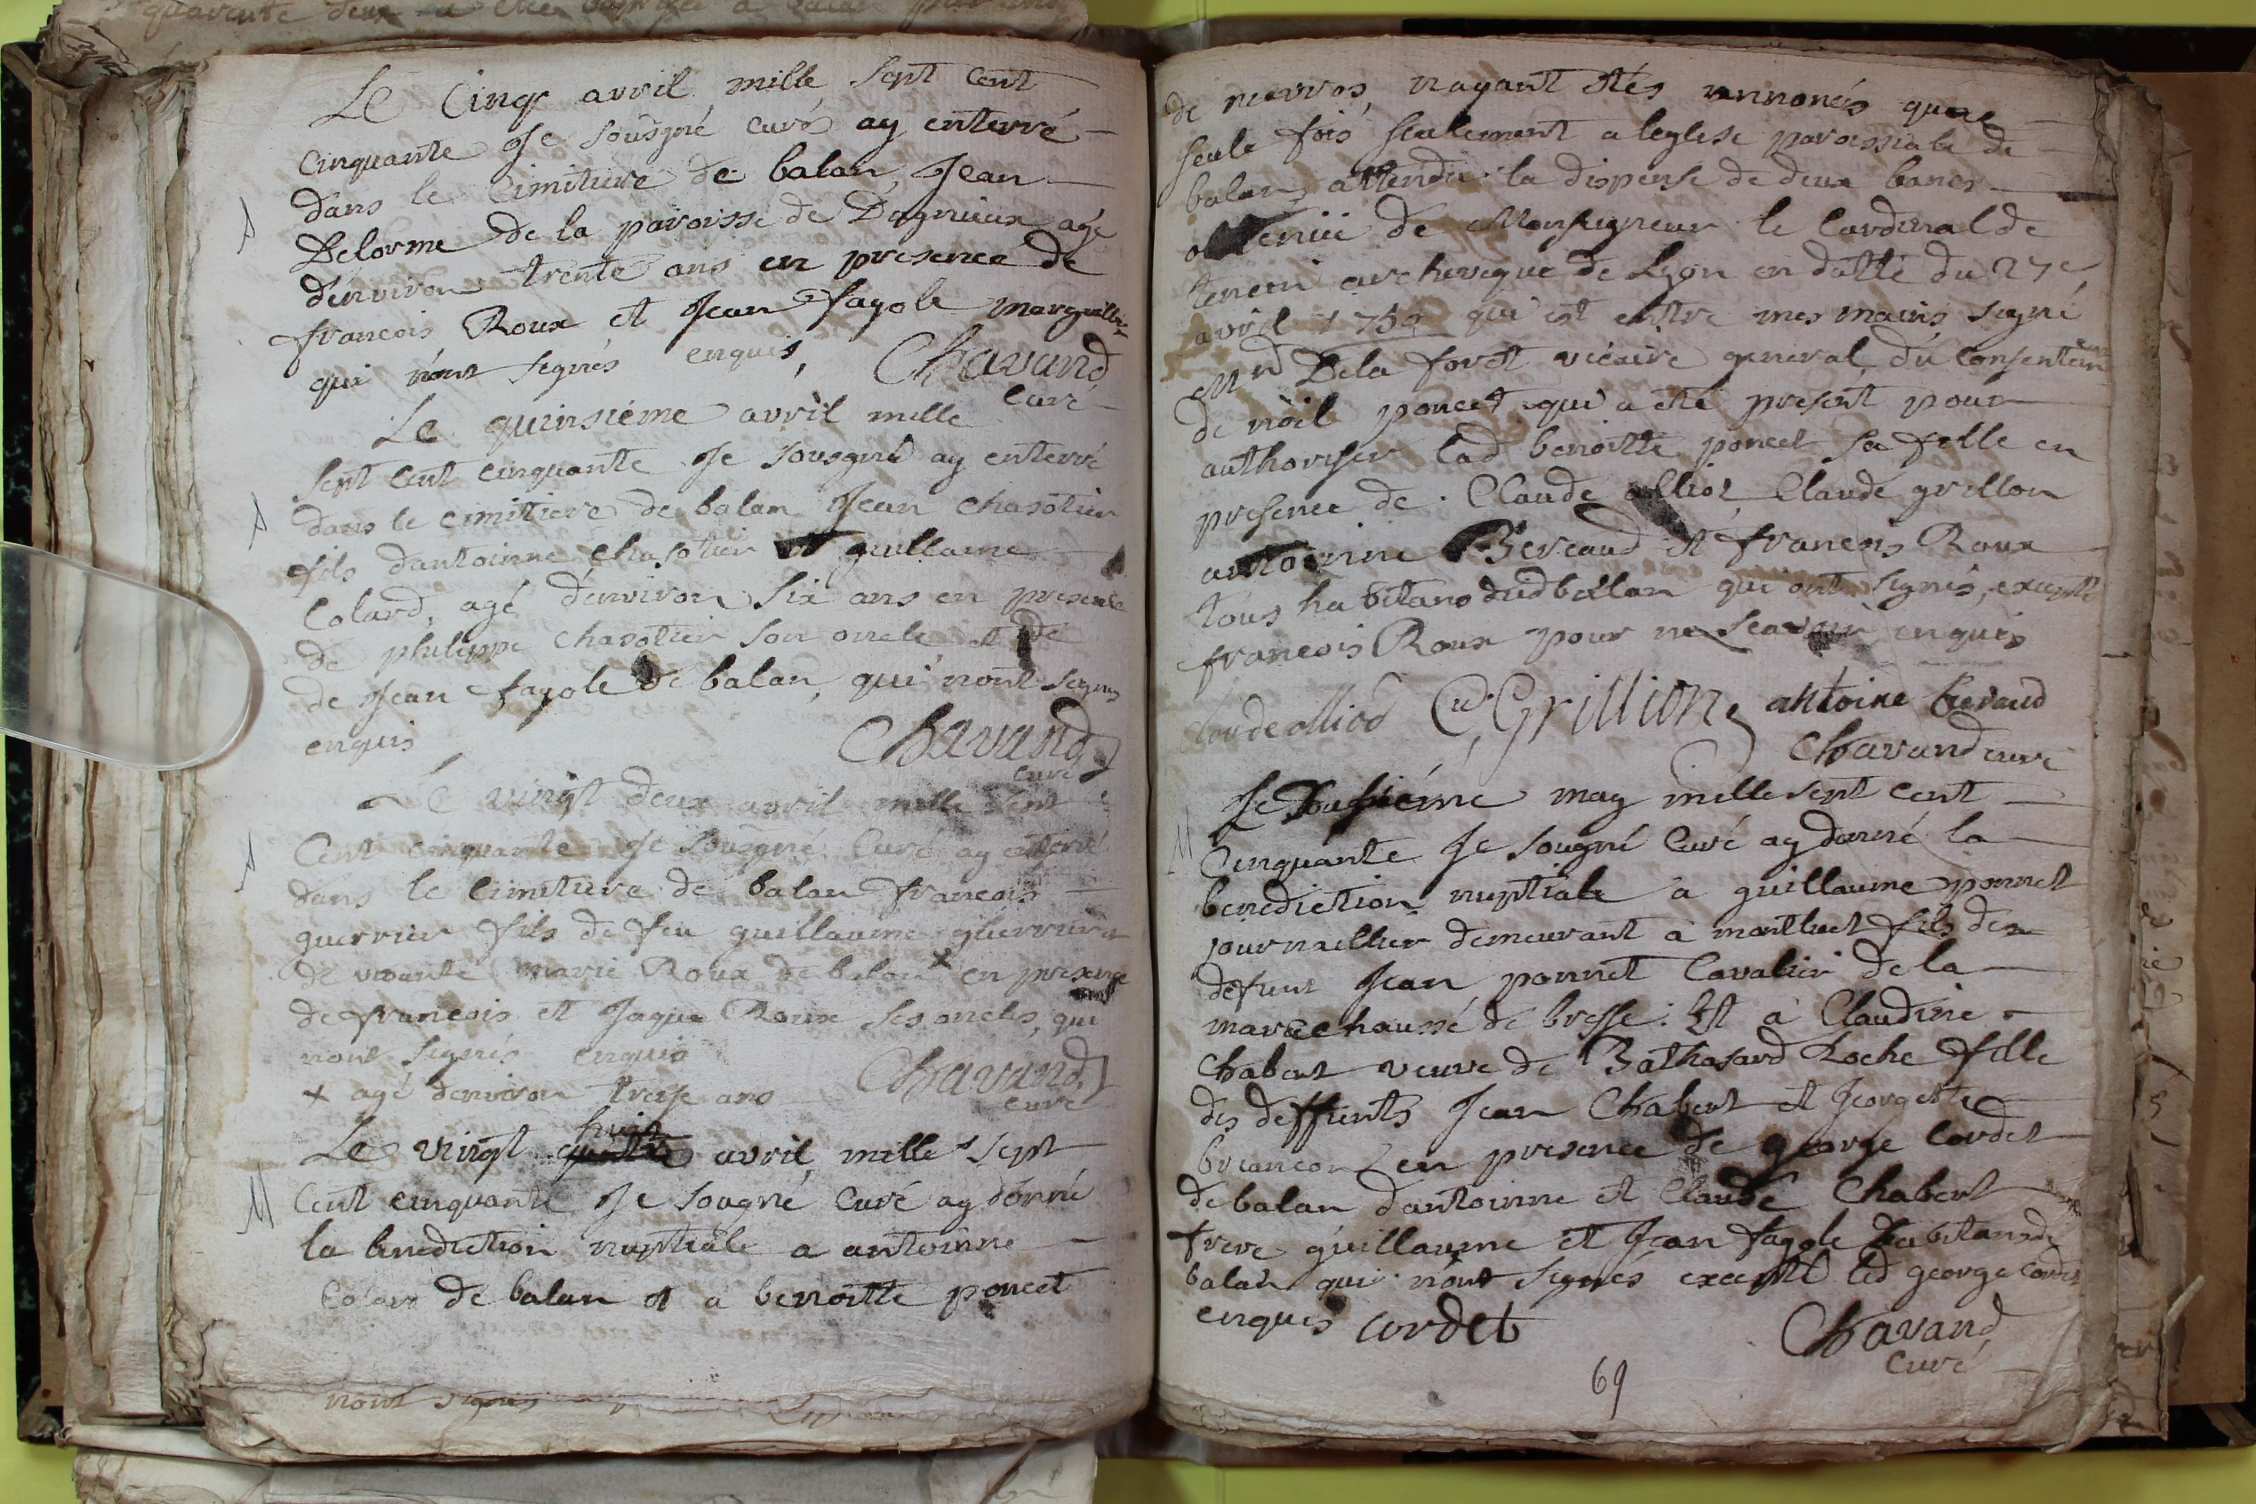 Le Cinqe avril mille sept cent
Cinquante Je sousgné curé ay enterré
dans le cimitiere de balan Jean
Delorme de la paroisse de Dagnieux agé
d'environ trente ans en presence de
francois Roux et Jean fagole marguillier
qui n'ont signés enquis, Chavand
curé
Le quinsiéme avril mille
sept cent cinquante Je sousgné ay enterré
dans le cimitiere de balan Jean chasotier
fils dantoinne chasotier et guillaume
Colard, agé d'environ six ans en presence
de philippe chasotier son oncle et de
de Jean fagole de balan, qui nont signés
enquis Chavand
curé
Le vingt deux avril mille sept
Cent cinquante Je sousgné Curé ay enterré
dans le cimitiere de balan francois
guerrier fils de feu guillaume guerrier et
de vivante marie Roux de balan x en presence
de francois et Jaque Roux ses oncles, qui
nont signés enquis Chavand
x agé denviron treise ans curé
huit
Le vingt quatre avril mille sept
Cent cinquante Je sougné Curé ay donné
la benediction nuptiale a antoinne
Colard de balan et a benoitte poncet
nont signés
de nievros, nayant étés annoncés qu'une
seule fois seulement a leglise paroissiale de
balan, attendu la dispense de deux bancs
obtenüe de Monseigneur le Cardinal de
tencin archeveque de Lyon en datte du 27e
avril 1750 qui est entre mes mains signé
Dela forêt vicaire general, du consentem
de nöil poncet qui a été present pour
authoriser lad benoitte poncet sa fille en
presence de Claude alliod Claude grillon
antoinne Bereaud et francois Roux
tous habitans dud ballan qui ont signés, excepté
francois Roux pour ne scavoir enquis
Claude alliod Cd. Grillion antoine Beraud
Chavand curé
Le huitiéme may mille sept cent
Cinquante Je sougné Curé ay donné la
benediction nuptiale a guillaume ponnet
journaillier demeurant a montluet fils de
defunt Jean ponnet Cavalier de la
marechaussé de bresse. Et à Claudine
Chabert veuve de Bathasard Roche fille
des deffunts Jean Chabert et Jeorgette
breancon en presence de george Cordet
de balan d'antoinne et Claude Chabert
frere guillaume et Jean fagole habitans de
balan qui nont signés excepté led george Cordet
enquis Cordet Chavand
curé
69